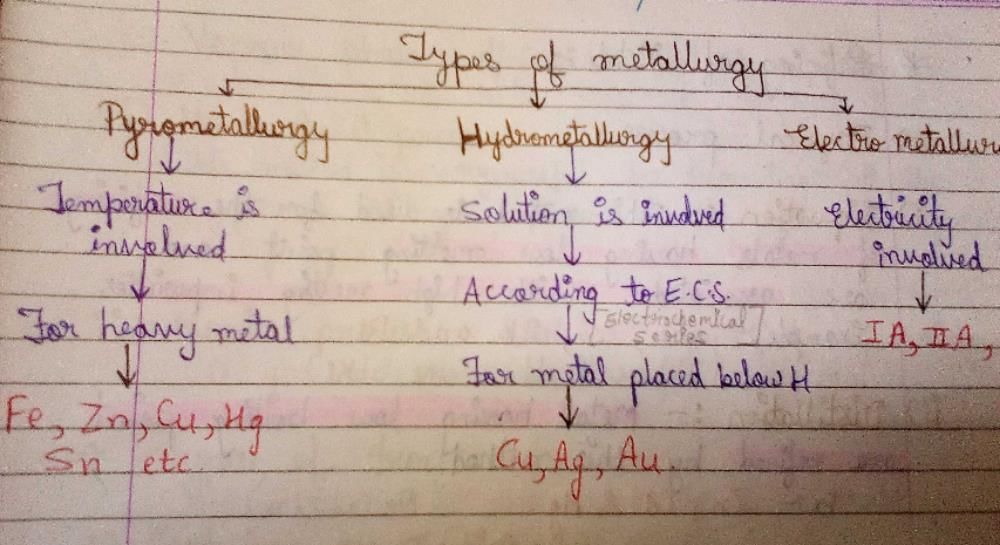 Types of metallurgy
Pyrometallurgy Hydrometallurgy Electro metallur
Temperature is Solution is involved Electricity
involved involved
According to E.C.S.
For heavy metal [Electrochemical IA, IIA,
series]
For metal placed below H
Fe, Zn, Cu, Hg
Sn etc Cu, Ag, Au